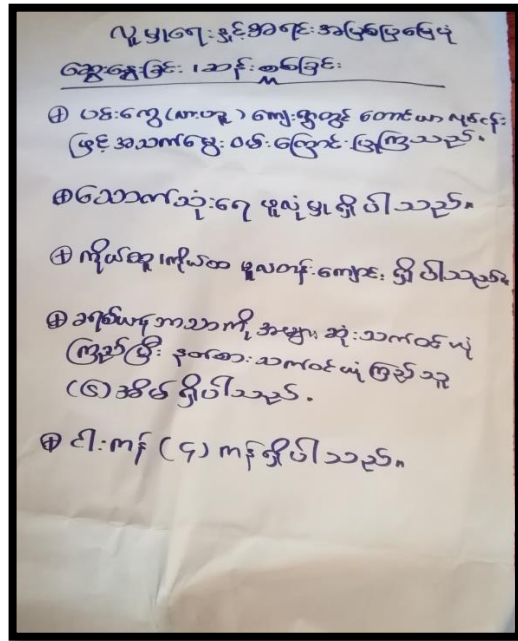 လူမှုရေးနှင့်အရင်းအမြစ်ပြမြေပုံ
ဆွေးနွေးခြင်း၊ ဆန်းစစ်ခြင်း
⊕ ပန်းကွေ့ ကျေးရွာတွင် တောင်ယာလုပ်ငန်း
ဖြင့် အသက်မွေးဝမ်းကြောင်းပြုကြသည်။
⊕ သောက်သုံးရေ ဖူလုံမှု ရှိပါသည်။
⊕ ကိုယ်ထူကိုယ်ထ မူလတန်းကျောင်း ရှိပါသည်။
⊕ ခရစ်ယာန်ဘာသာကို အများဆုံးသက်ဝင်ယုံ
ကြည်ပြီး နတ်စားသက်ဝင်ယုံကြည်သူ
(၆) အိမ်ရှိပါသည်။
⊕ ငါးကန် (၄) ကန်ရှိပါသည်။